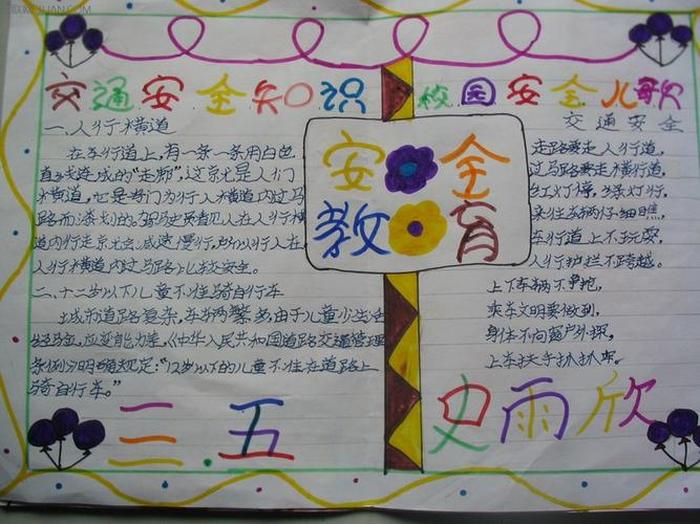 交通安全知识
一、人行横道
在车行道上,有一条一条用白色
直线连成的“走廊”,这就是人们
横道,也是专门为行人横道内过马
路而漆划的。驾驶员看见人在人行横
道内行走就会减速慢行,所以行人在
人行横道内过马路比较安全。
二、十二岁以下儿童不准骑自行车
城市道路复杂,车辆繁多由于儿童少生活
经验,应变能力差,《中华人民共和国道路交通管理
条例》明确规定:“12岁以下的儿童不准在道路上
骑自行车。”
三.五
安全
教育
校园安全儿歌
交通安全
走路要走人行道,
过马路要走横行道,
红灯停,绿灯行,
来往车辆仔细瞧,
车行道上不玩耍,
人行护栏不跨越。
上下车辆不拥挤,
乘车文明要做到,
身体不向窗户外探,
上车扶手抓抓牢。
史雨欣